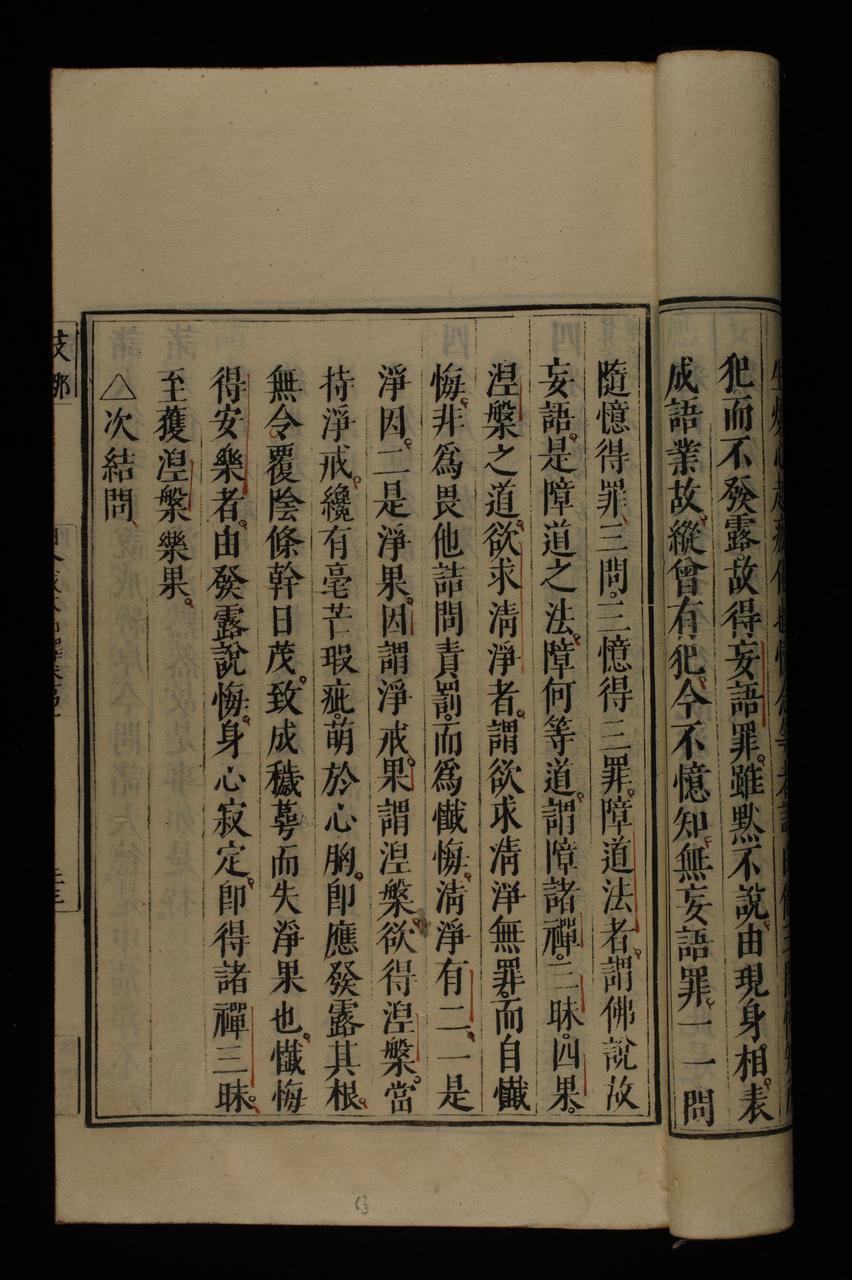 犯而不發露。故得妄語罪。雖黙不說。由現身相。表
成語業故。縱曾有犯。今不憶知。無妄語罪。一一問
隨憶得罪。三問。三憶得三罪。障道法者。謂佛說故
妄語。是障道之法。障何等道。謂障諸禪。三昧。四果。
涅槃之道。欲求淸淨者。謂欲求淸淨無罪。而自懺
悔。非爲畏他詰問責罰。而爲懺悔。淸淨有二。一是
淨因。二是淨果。因謂淨戒。果謂涅槃。欲得涅槃。當
持淨戒。纔有毫芒瑕疵。萌於心胸。卽應發露其根。
無令覆陰條幹日茂。致成穢蕚而失淨果也。懺悔
得安樂者。由發露說悔。身心寂定。卽得諸禪三昧。
至獲涅槃樂果。
△次結問
63